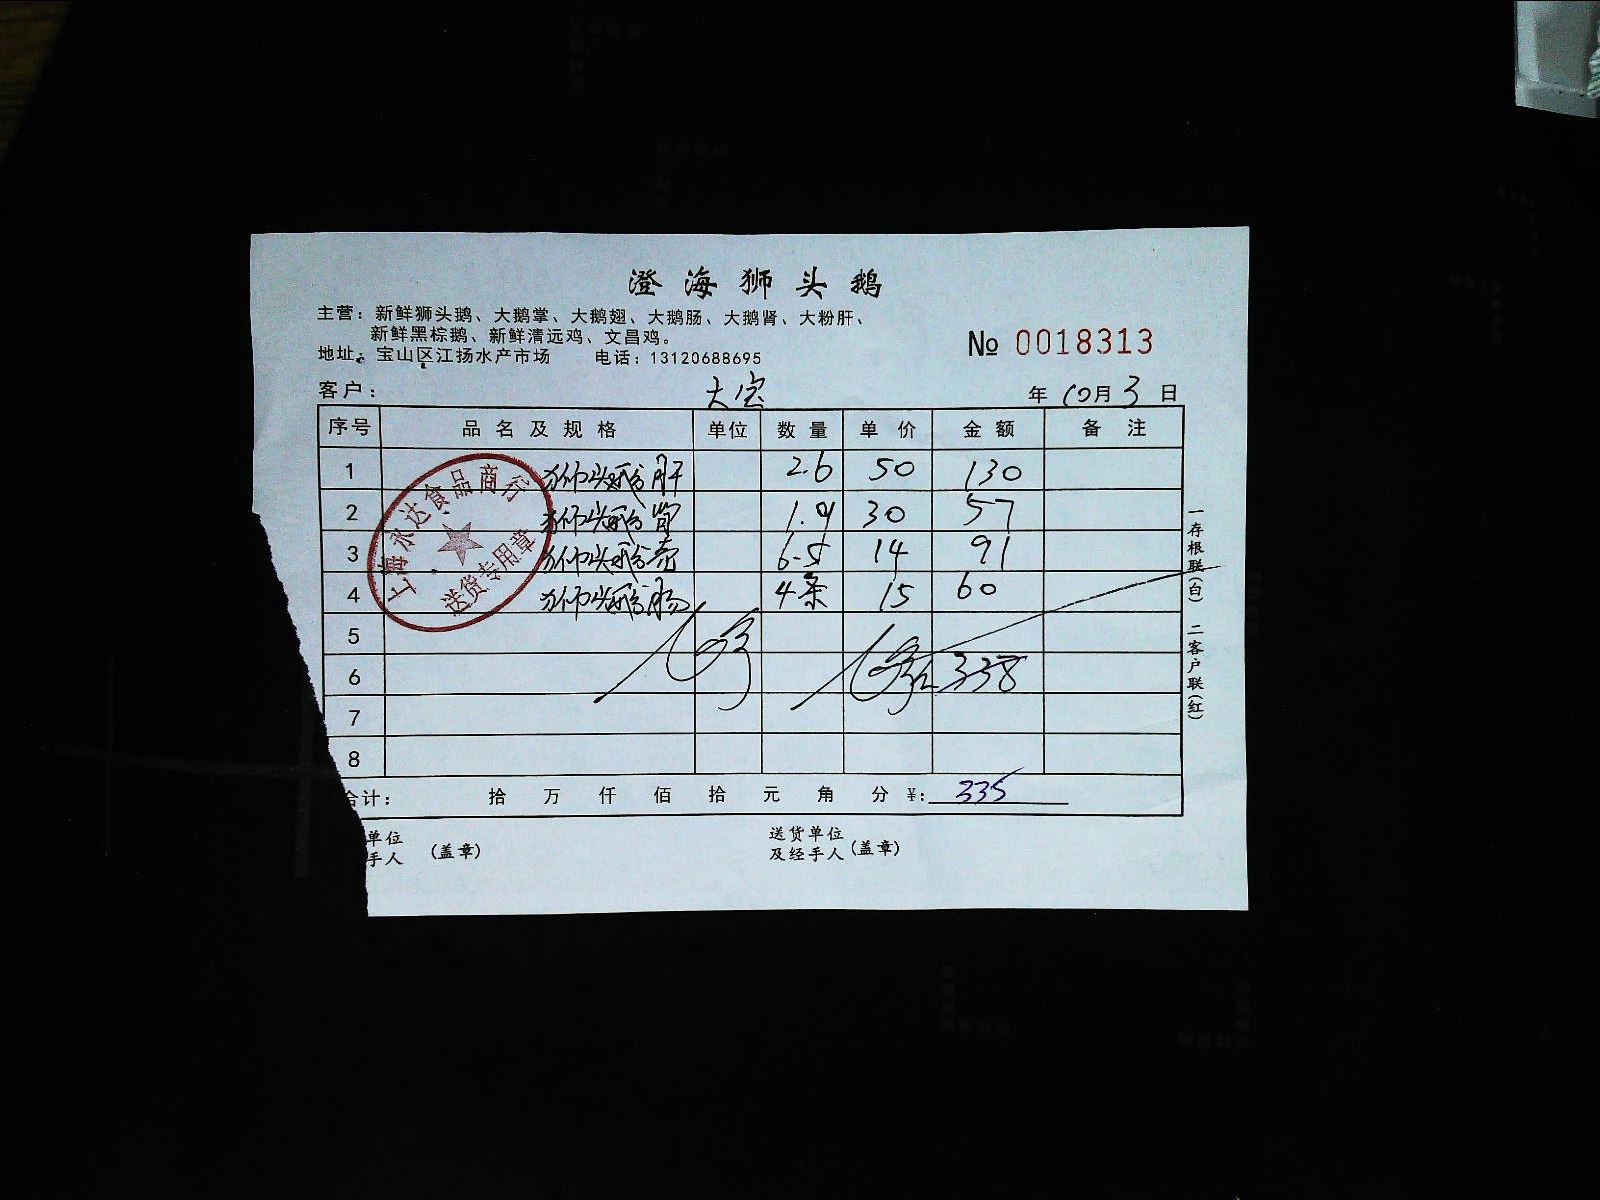 澄海狮头鹅
主营：新鲜狮头鹅、大鹅掌、大鹅翅、大鹅肠、大鹅肾、大粉肝、
新鲜黑棕鹅、新鲜清远鸡、文昌鸡。
№ 0018313
地址：宝山区江扬水产市场 电话：13120688695
客户： 大宝 年 10月 3 日
序号 品名及规格 单位 数量 单价 金额 备注
1 狮头鹅肝 2.6 50 130
2 狮头鹅 1.9 30 57
3 狮头鹅 6.5 14 91
4 狮头鹅肠 4条 15 60
5
6 338
7
8
合计： 拾 万 仟 佰 拾 元 角 分 ¥: 335
单位
手人 (盖章)
送货单位
及经手人 (盖章)
一存根联(白) 二客户联(红)
上海永达食品商行
送货专用章